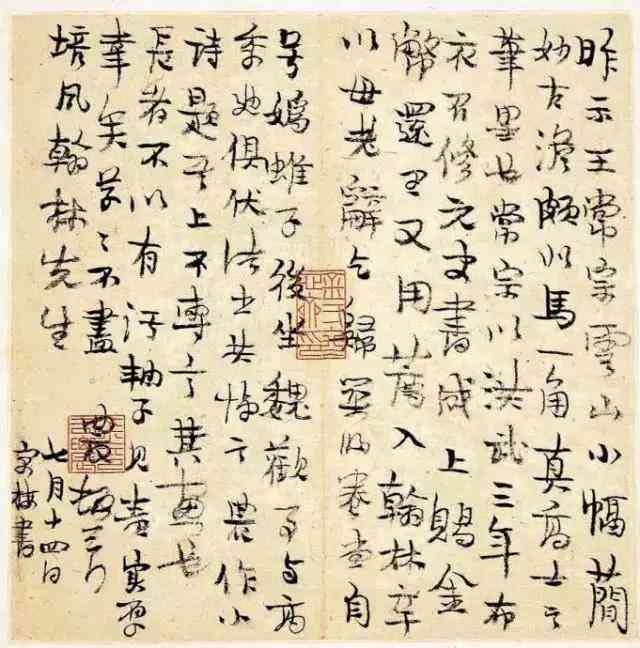 昨示王常宗雲山小幅蕳
妙古澹頗似馬一角真高士之
筆墨也常宗以洪武三年布
衣召修元史書成上賜金
幣還里又用薦入翰林卒
以母老辭乞歸堂自
号媯蜼子後坐魏觀事与高
季迪俱伏法士共悼之農作小
詩題其上不專言其畫也
長者不以有污軸子見責實厚
幸矣草〻不盡
培風翰林先生
七月十四日
書